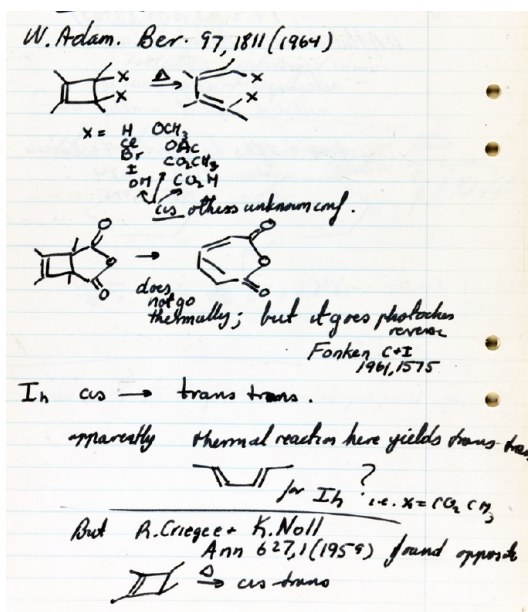 W. Adam. Ber. 97, 1811 (1964)
X
X
Δ
X
X
X = H OCH3
Cl OAc
Br CO2CH3
I CO2H
OH
cis others unknown conf.
O
O
O
O
O
O
does
not go
thermally; but it goes photochem
reverse
Fonken C+I
1961, 1575
In cis → trans trans.
apparently thermal reaction here yields trans-trans
for In ? i.e. X = CO2CH3
But R. Criegee + K. Noll
Ann 627, 1 (1959) found opposite
Δ → cis trans